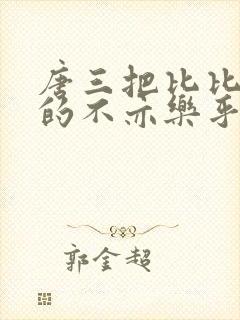 唐三把比比
的不亦樂乎
郭金超